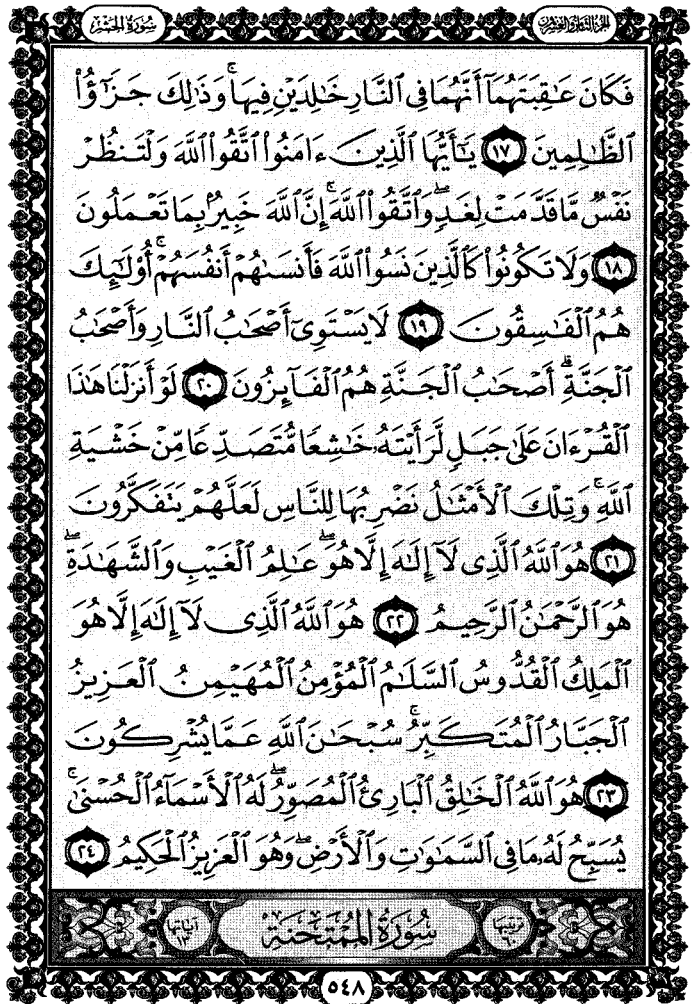 سُورَةُ الحَشْرِ
الجزء الثامن والعشرون
فَكَانَ عَٰقِبَتَهُمَآ أَنَّهُمَا فِى ٱلنَّارِ خَٰلِدَيْنِ فِيهَا ۚ وَذَٰلِكَ جَزَٰٓؤُا۟
ٱلظَّٰلِمِينَ ١٧ يَٰٓأَيُّهَا ٱلَّذِينَ ءَامَنُوا۟ ٱتَّقُوا۟ ٱللَّهَ وَلْتَنظُرْ
نَفْسٌ مَّا قَدَّمَتْ لِغَدٍ ۖ وَٱتَّقُوا۟ ٱللَّهَ ۚ إِنَّ ٱللَّهَ خَبِيرٌۢ بِمَا تَعْمَلُونَ
١٨ وَلَا تَكُونُوا۟ كَٱلَّذِينَ نَسُوا۟ ٱللَّهَ فَأَنسَىٰهُمْ أَنفُسَهُمْ ۚ أُو۟لَٰٓئِكَ
هُمُ ٱلْفَٰسِقُونَ ١٩ لَا يَسْتَوِىٓ أَصْحَٰبُ ٱلنَّارِ وَأَصْحَٰبُ
ٱلْجَنَّةِ ۚ أَصْحَٰبُ ٱلْجَنَّةِ هُمُ ٱلْفَآئِزُونَ ٢٠ لَوْ أَنزَلْنَا هَٰذَا
ٱلْقُرْءَانَ عَلَىٰ جَبَلٍ لَّرَأَيْتَهُۥ خَٰشِعًا مُّتَصَدِّعًا مِّنْ خَشْيَةِ
ٱللَّهِ ۚ وَتِلْكَ ٱلْأَمْثَٰلُ نَضْرِبُهَا لِلنَّاسِ لَعَلَّهُمْ يَتَفَكَّرُونَ
٢١ هُوَ ٱللَّهُ ٱلَّذِى لَآ إِلَٰهَ إِلَّا هُوَ ۖ عَٰلِمُ ٱلْغَيْبِ وَٱلشَّهَٰدَةِ ۖ
هُوَ ٱلرَّحْمَٰنُ ٱلرَّحِيمُ ٢٢ هُوَ ٱللَّهُ ٱلَّذِى لَآ إِلَٰهَ إِلَّا هُوَ
ٱلْمَلِكُ ٱلْقُدُّوسُ ٱلسَّلَٰمُ ٱلْمُؤْمِنُ ٱلْمُهَيْمِنُ ٱلْعَزِيزُ
ٱلْجَبَّارُ ٱلْمُتَكَبِّرُ ۚ سُبْحَٰنَ ٱللَّهِ عَمَّا يُشْرِكُونَ
٢٣ هُوَ ٱللَّهُ ٱلْخَٰلِقُ ٱلْبَارِئُ ٱلْمُصَوِّرُ ۖ لَهُ ٱلْأَسْمَآءُ ٱلْحُسْنَىٰ ۚ
يُسَبِّحُ لَهُۥ مَا فِى ٱلسَّمَٰوَٰتِ وَٱلْأَرْضِ ۖ وَهُوَ ٱلْعَزِيزُ ٱلْحَكِيمُ ٢٤
ترتيبها ٦٠
سُورَةُ المُمْتَحنَةِ
آياتها ١٣
٥٤٨